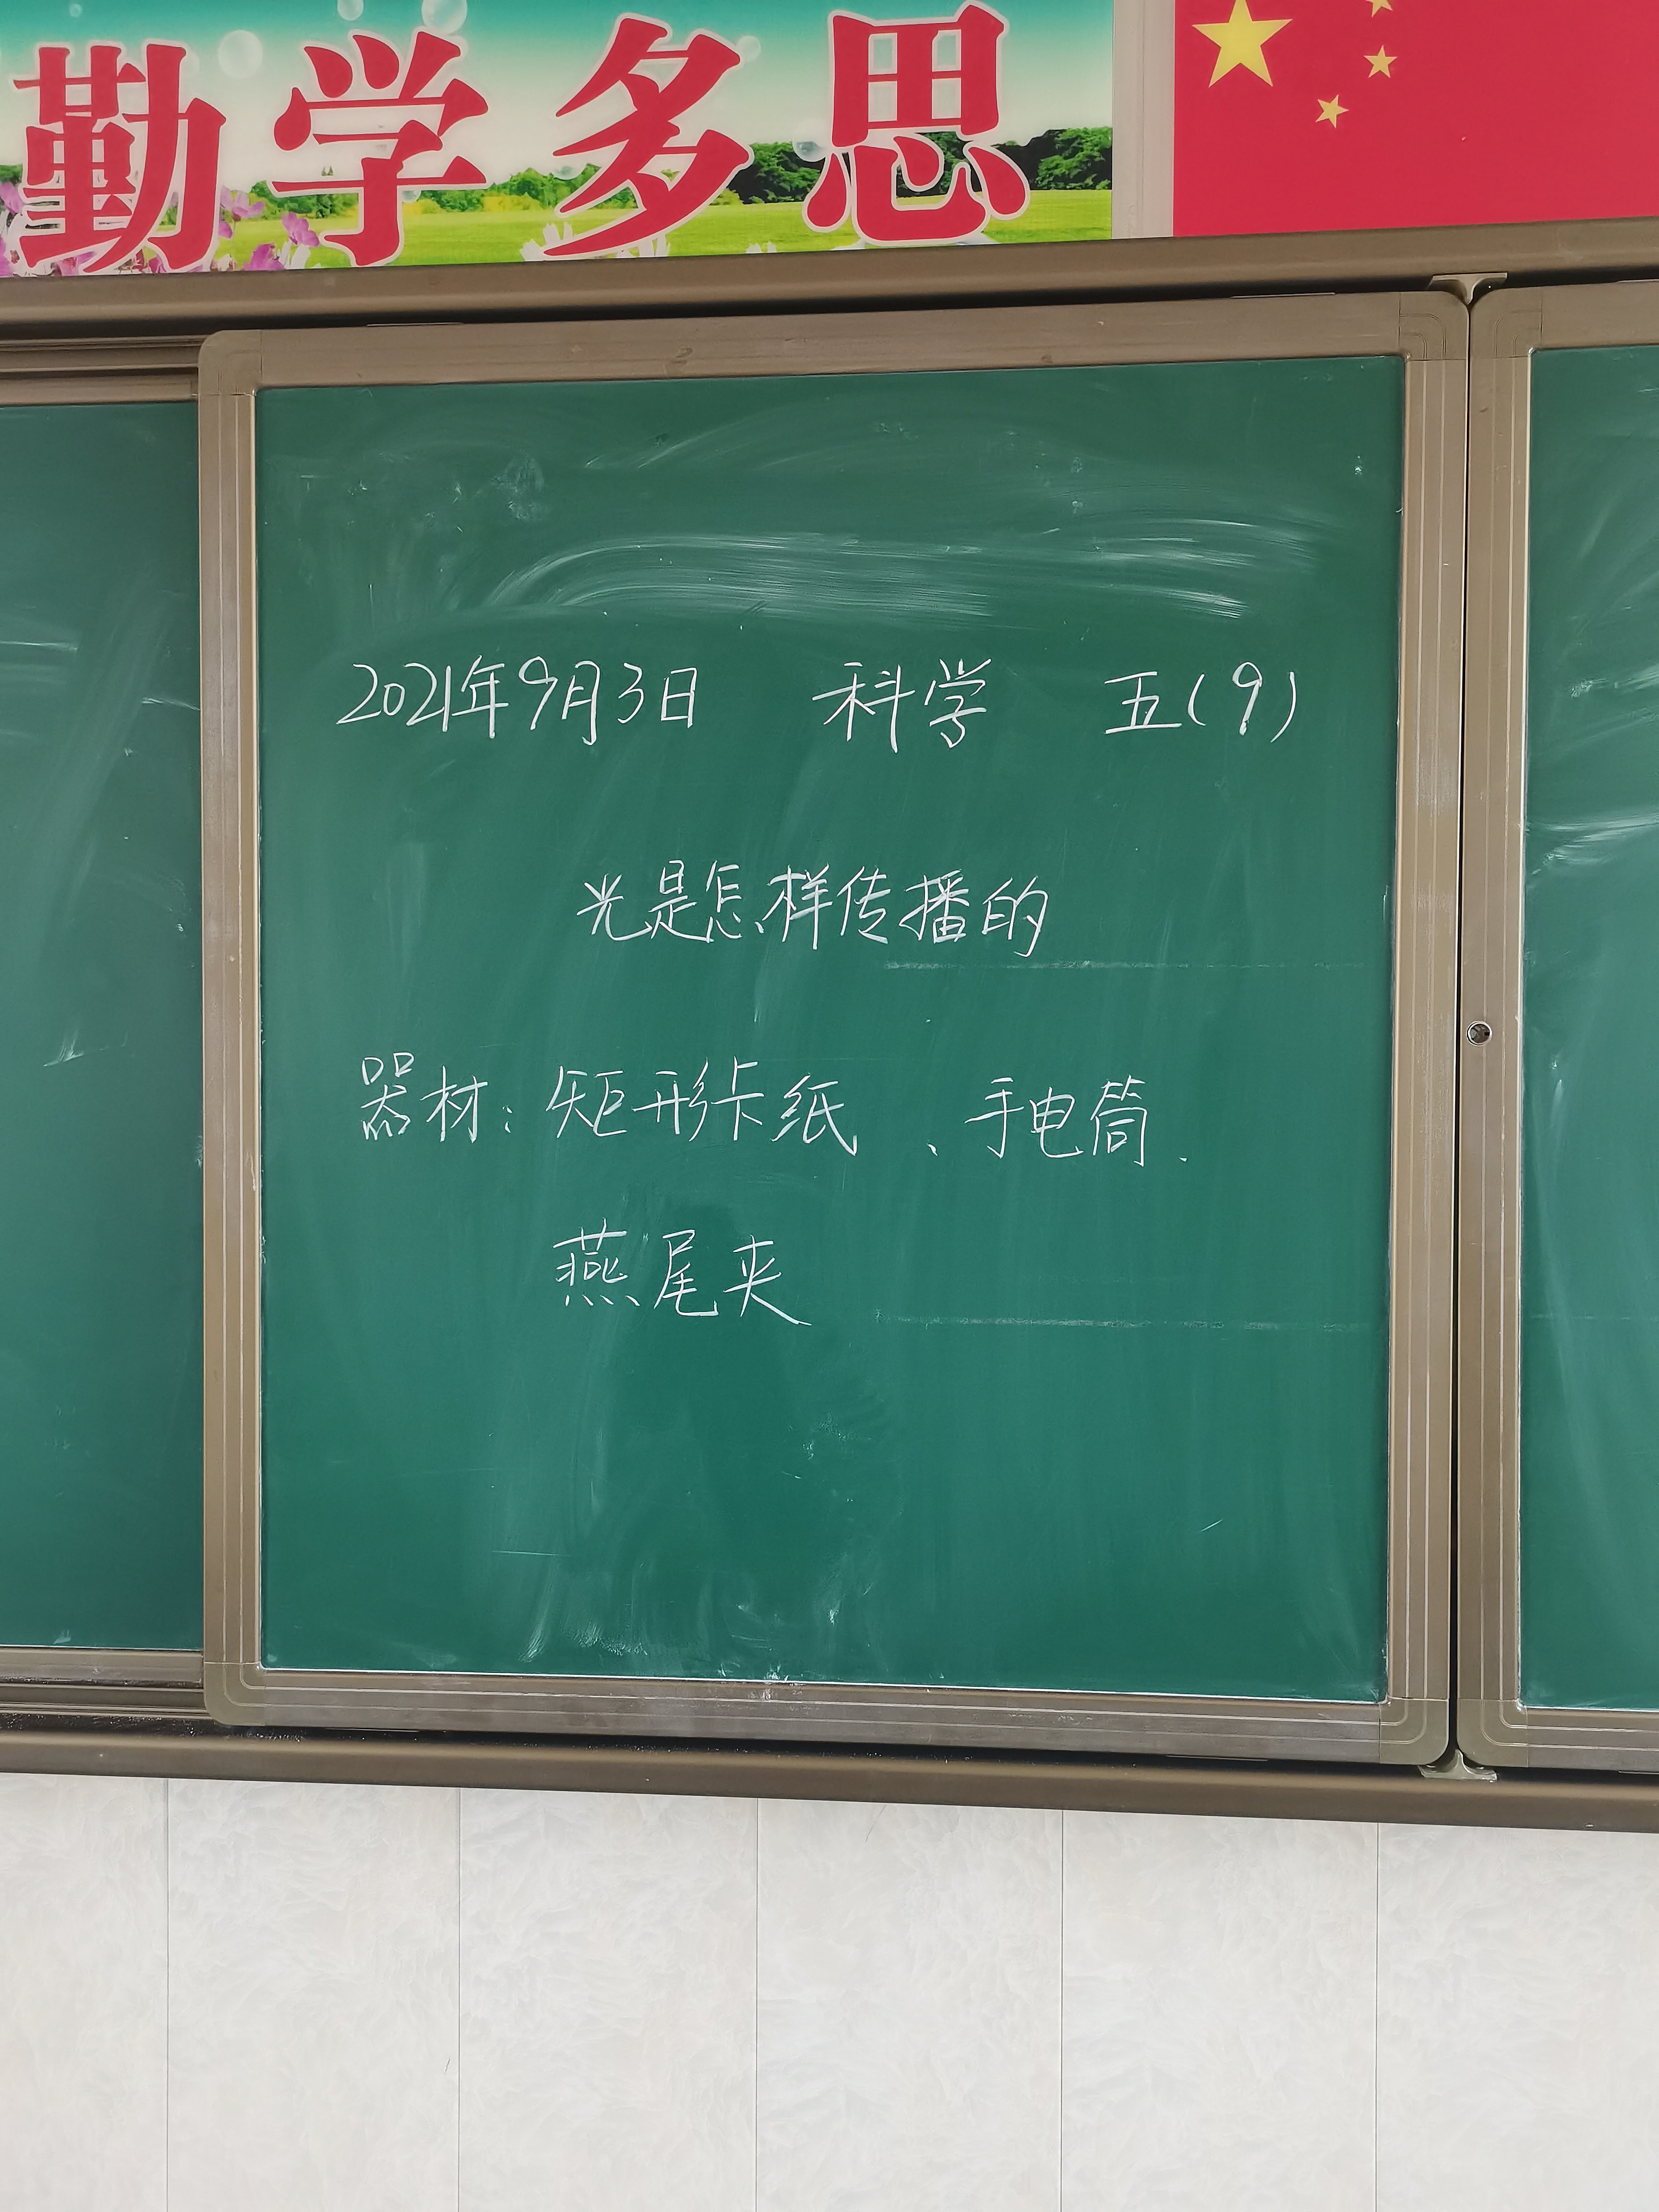 勤学多思
2021年9月3日 科学 五(9)
光是怎样传播的
器材：矩形卡纸、手电筒、
燕尾夹